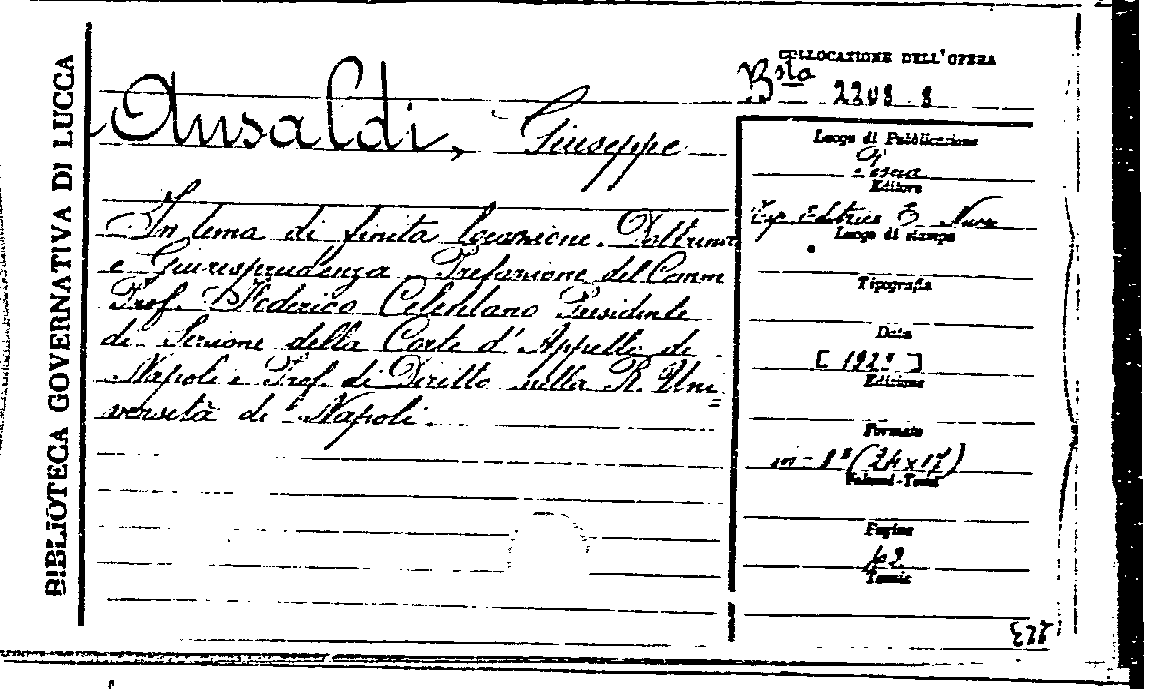 BIBLIOTECA GOVERNATIVA DI LUCCA
COLLOCAZIONE DELL'OPERA
Bsta 2208 8
Ansaldi, Giuseppe
In tema di finita locazione. Dottrina
e Giurisprudenza Prefazione del Comm
Prof. Federico Celentano Presidente
di Sezione della Corte d'Appello di
Napoli e Prof. di Diritto nella R. Uni=
versità di Napoli.
Luogo di Pubblicazione
Pescia
Editore
Tip. Editrice E. Nucci
Luogo di stampa
Tipografia
Data
Edizione
Formato
in-8° (24x17)
Volumi-Tomi
Pagine
42
Tavole